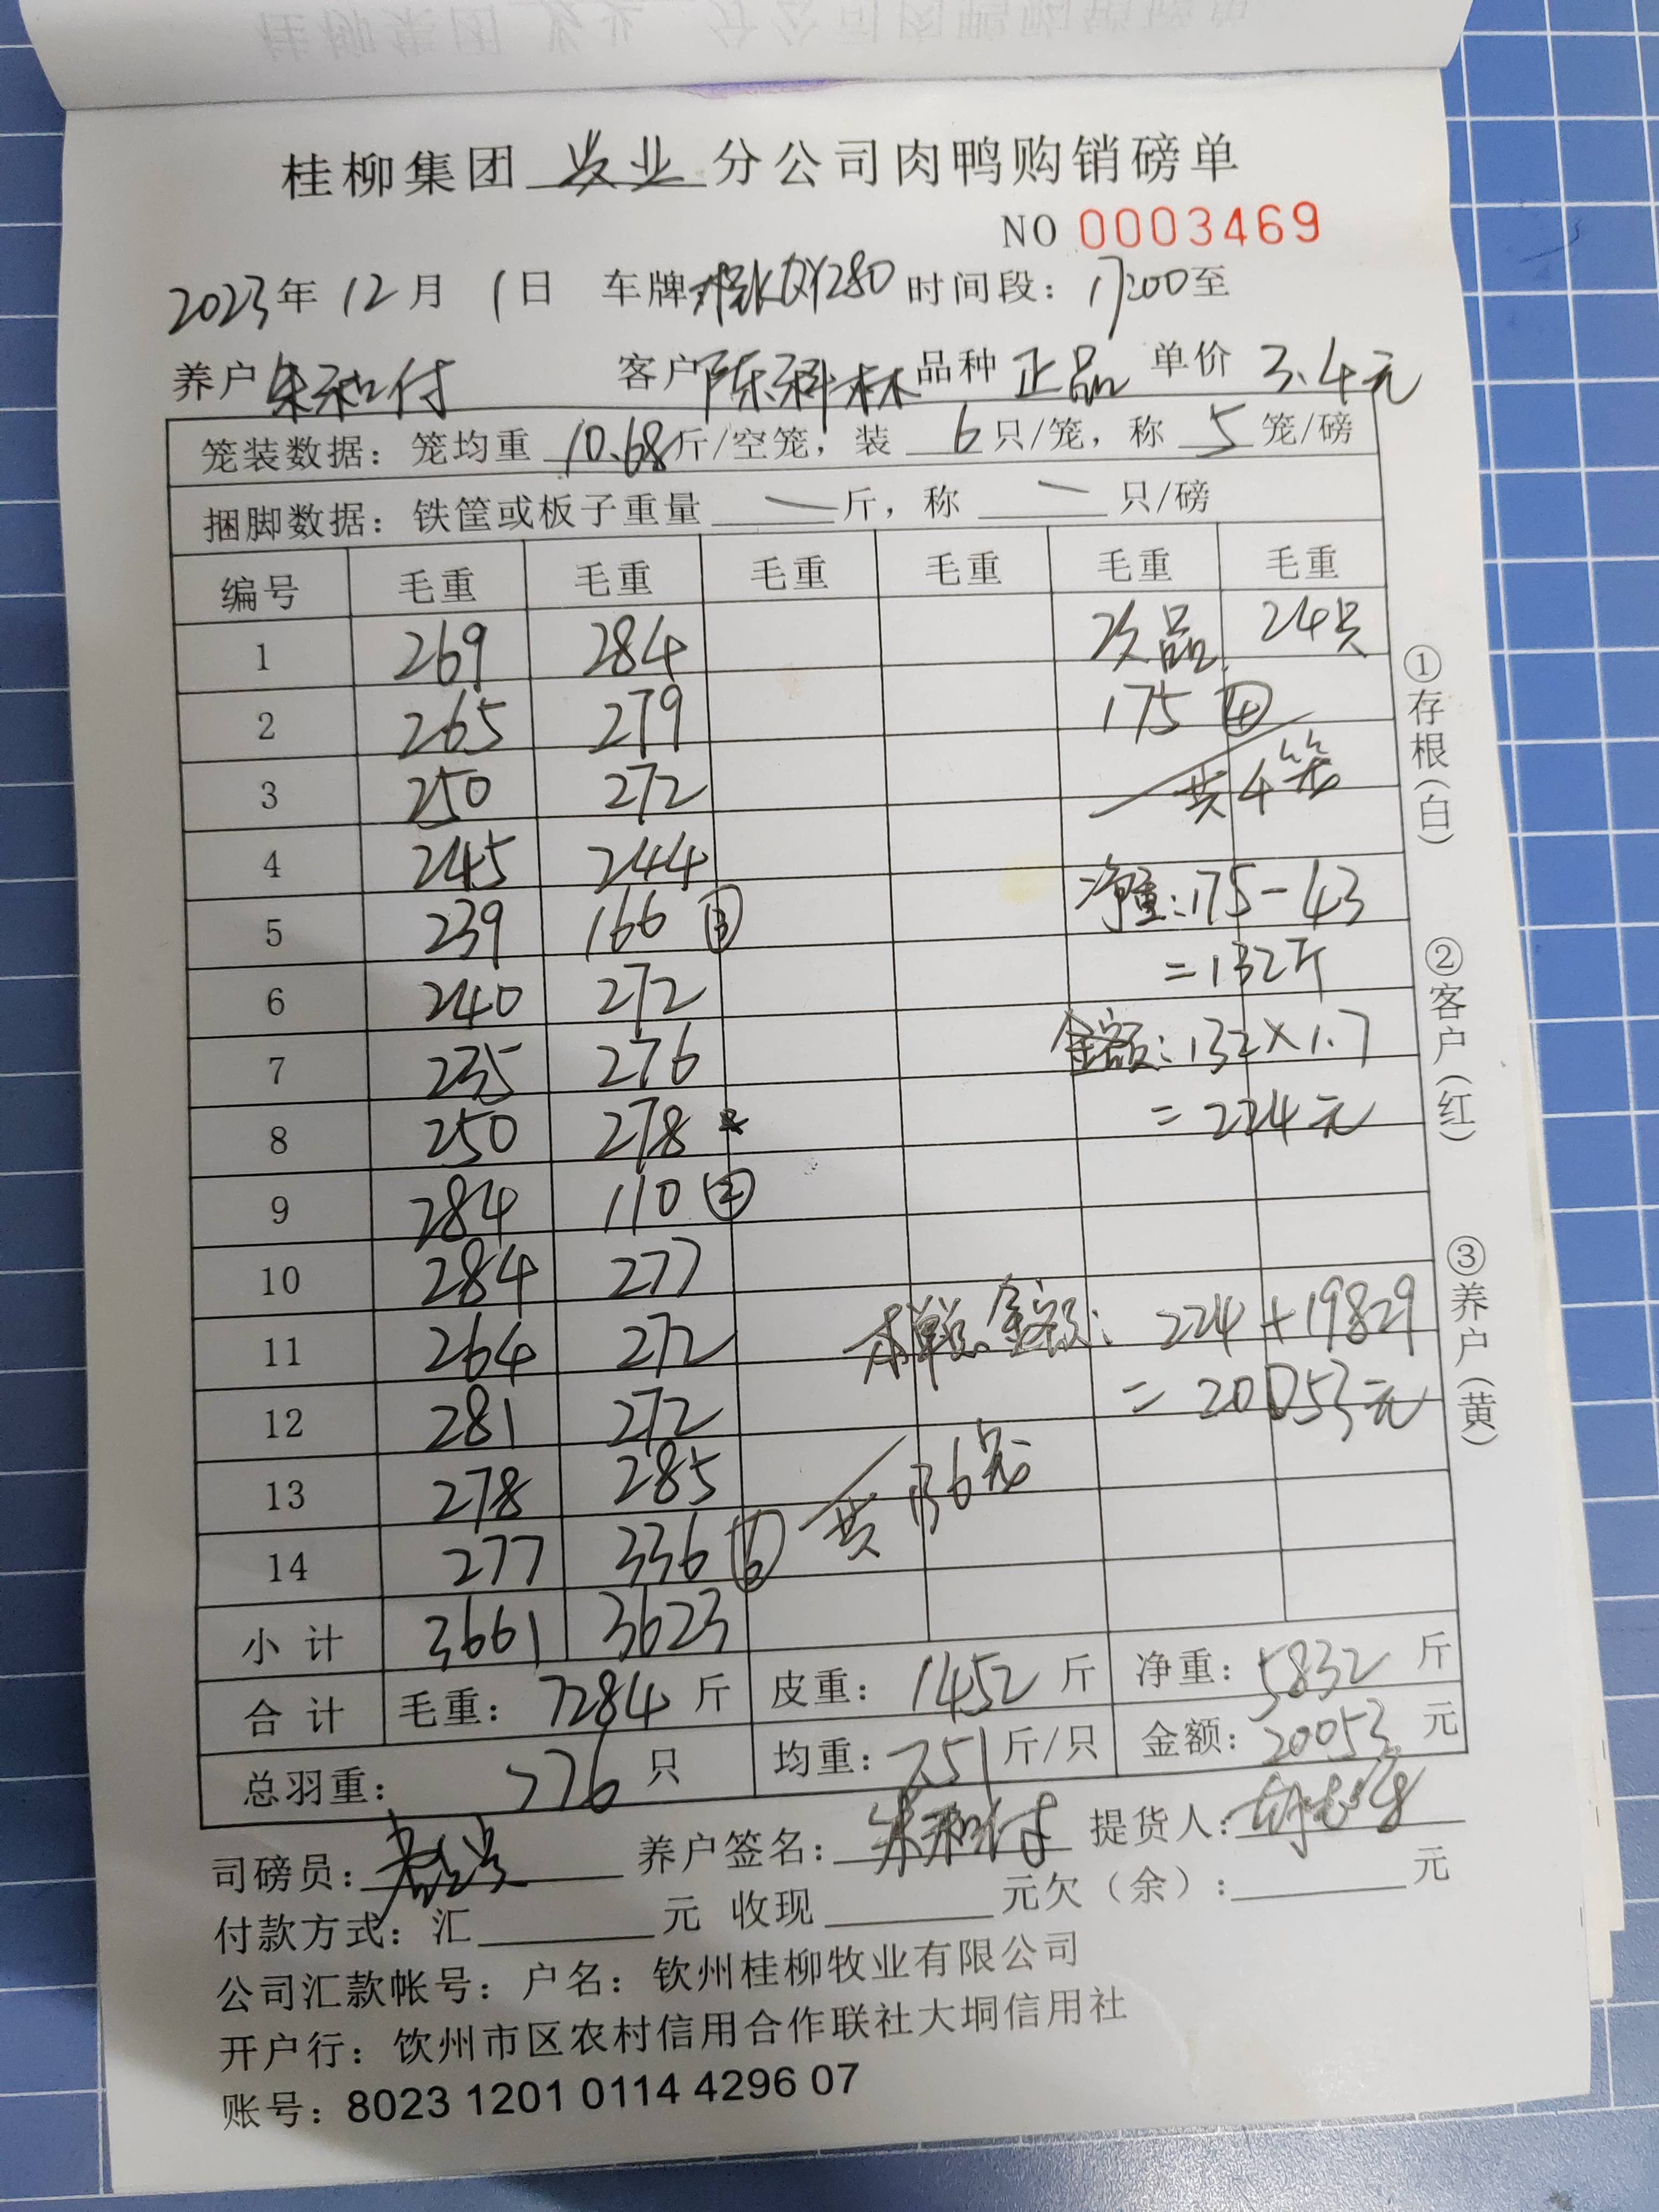 桂柳集团 牧业 分公司肉鸭购销磅单
NO 0003469
2023年 12月 1日 车牌 桂KQY280 时间段：17:00至
养户 朱和付 客户 陈科林 品种 正品 单价 3.4元
笼装数据：笼均重 10.68斤/空笼，装 6只/笼，称 5 笼/磅
捆脚数据：铁筐或板子重量 — 斤，称 — 只/磅
编号 毛重 毛重 毛重 毛重 毛重 毛重
1 269 284 次品 24只
2 265 279 175 ④
3 250 272 共4笼
4 245 244
5 239 166 ③ 净重：175-43
6 240 272 =132斤
7 235 276 金额：132×1.7
8 250 278 =224元
9 284 110 ②
10 284 277
11 264 272 本单总金额：224+19829
12 281 272 =20053元
13 278 285
14 277 336 ⑥ 共136笼
小计 3661 3623
合计 毛重：7284 斤 皮重：1452 斤 净重：5832 斤
总羽重： 776 只 均重：7.51斤/只 金额：20053 元
司磅员： 养户签名：朱和付 提货人：
付款方式：汇 元 收现 元欠（余）： 元
公司汇款帐号：户名：钦州桂柳牧业有限公司
开户行：钦州市区农村信用合作联社大垌信用社
账号：8023 1201 0114 4296 07
①存根（白）
②客户（红）
③养户（黄）